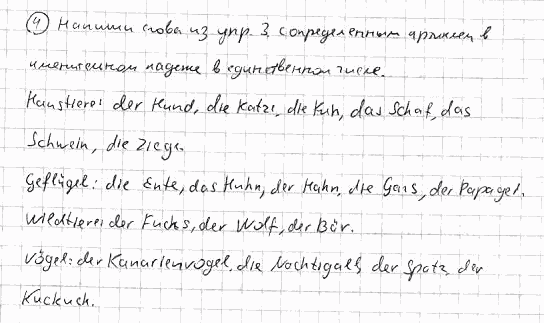 ④ Напиши слова из упр. 3, с определенным артиклем в
именительном падеже в единственном числе.
Haustiere: der Hund, die Katze, die Kuh, das Schaf, das
Schwein, die Ziege.
Geflügel: die Ente, das Huhn, der Hahn, die Gans, der Papagei.
Wildtiere: der Fuchs, der Wolf, der Bär.
Vögel: der Kanarienvogel, die Nachtigall, der Spatz, der
Kuckuch.